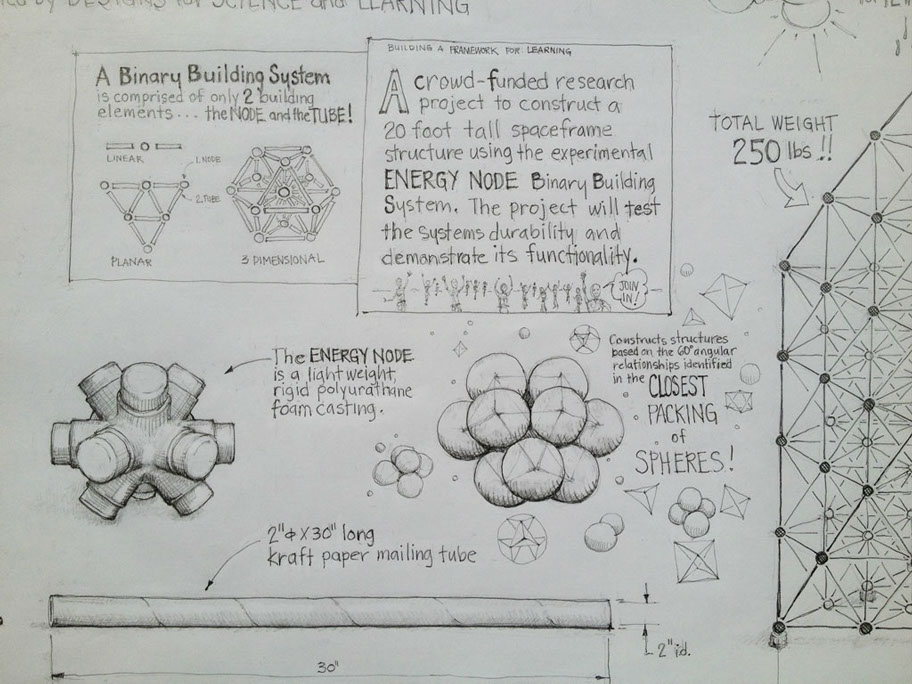 by DESIGNS for SCIENCE and LEARNING
A Binary Building System
is comprised of only 2 building
elements... the NODE and the TUBE!
LINEAR
1. NODE
2. TUBE
PLANAR
3 DIMENSIONAL
BUILDING A FRAMEWORK FOR LEARNING
A crowd-funded research
project to construct a
20 foot tall spaceframe
structure using the experimental
ENERGY NODE Binary Building
System. The project will test
the systems durability and
demonstrate its functionality.
JOIN
IN!
TOTAL WEIGHT
250 lbs!!
The ENERGY NODE
is a light weight,
rigid polyurathane
foam casting.
Constructs structures
based on the 60° angular
relationships identified
in the CLOSEST
PACKING
of
SPHERES!
2"ϕ X 30" long
kraft paper mailing tube
2" id.
30"